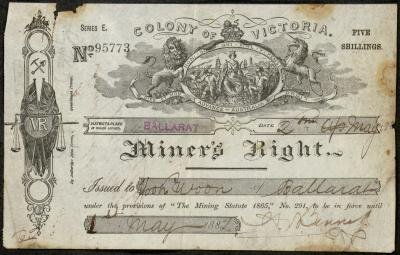 SERIES E.
COLONY OF VICTORIA.
FIVE SHILLINGS.
No 95773
ADVANCE AUSTRALIA
VR
DISTRICT & PLACE
OF BEING ISSUED.
BALLARAT
DATE 2 May
Miner's Right.
Issued to Woon of Ballarat
under the provisions of "The Mining Statute 1865," No. 291, to be in force until
1st May 1882